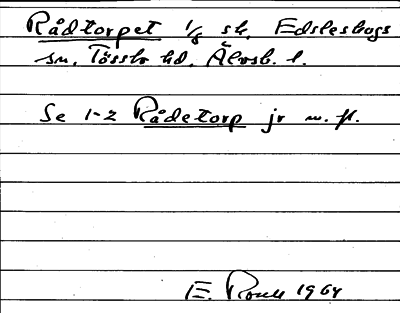 Rådtorpet 1/8 sk. Edsleskogs
sn. Tössbo hd. Älvsb. l.
Se 1-2 Rådetorp jr m. fl.
E. 1964